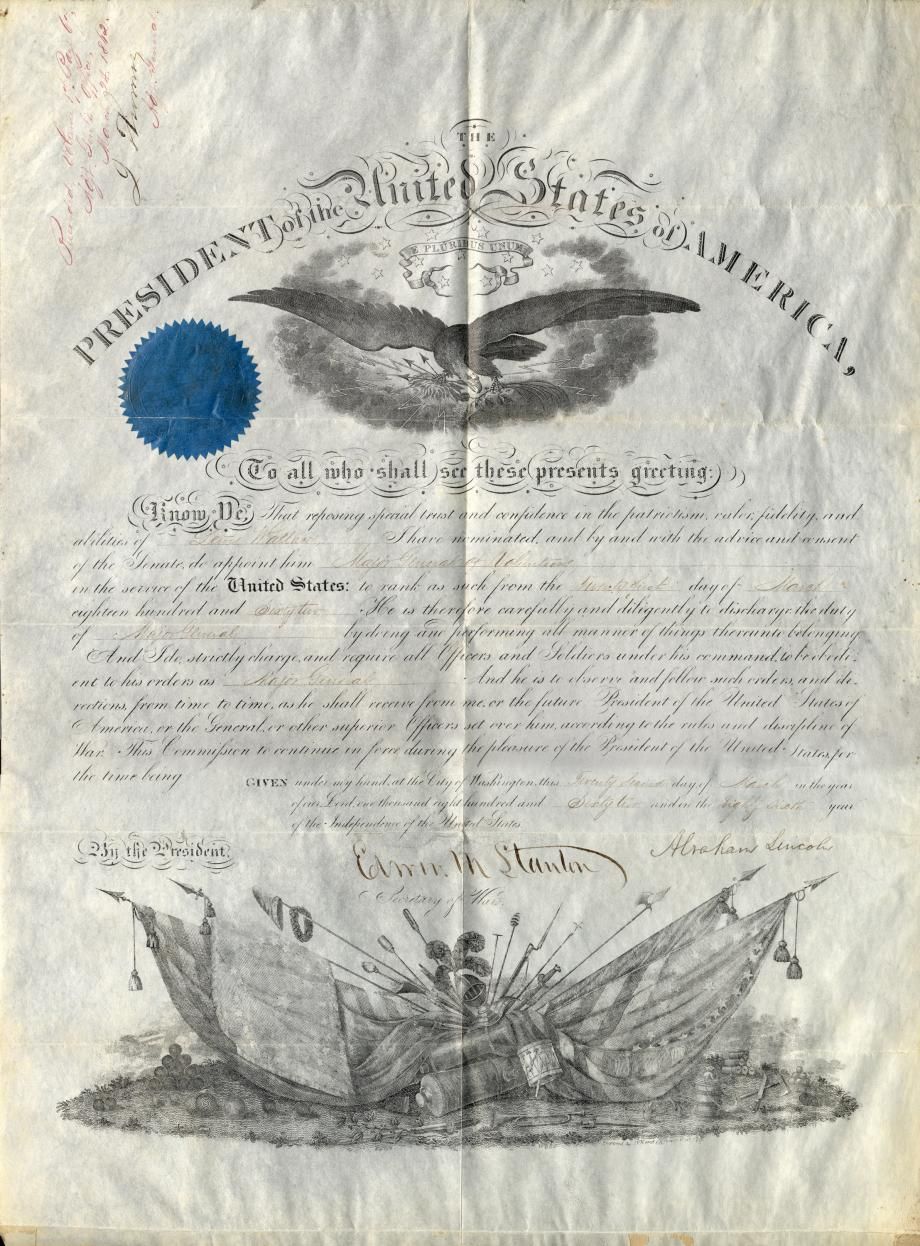 Vol. 6,
Adjt. Genl's Office
March 22d 1862.
L Thomas
THE
PRESIDENT of the United States of AMERICA,
E PLURIBUS UNUM
To all who shall see these presents greeting:
Know Ye, That reposing special trust and confidence in the patriotism, valor, fidelity, and
abilities of Lewis Wallace I have nominated, and by and with the advice and consent
of the Senate, do appoint him Major General of Volunteers
in the service of the United States: to rank as such from the twenty first day of March
eighteen hundred and sixty two. He is therefore carefully and diligently to discharge the duty
of Major General by doing and performing all manner of things thereunto belonging.
And I do, strictly charge, and require all Officers and Soldiers under his command, to be obedi-
ent to his orders as Major General And he is to observe and follow such orders, and di-
rections, from time to time, as he shall receive from me, or the future President of the United States of
America, or the General, or other superior Officers set over him, according to the rules and discipline of
War. This Commission to continue in force during the pleasure of the President of the United States, for
the time being
GIVEN under my hand, at the City of Washington, this twenty second day of March in the year
of our Lord, one thousand eight hundred and sixty two and in the eighty sixth year
of the Independence of the United States.
By the President.
Abraham Lincoln
Edwin M Stanton
Secretary of War.